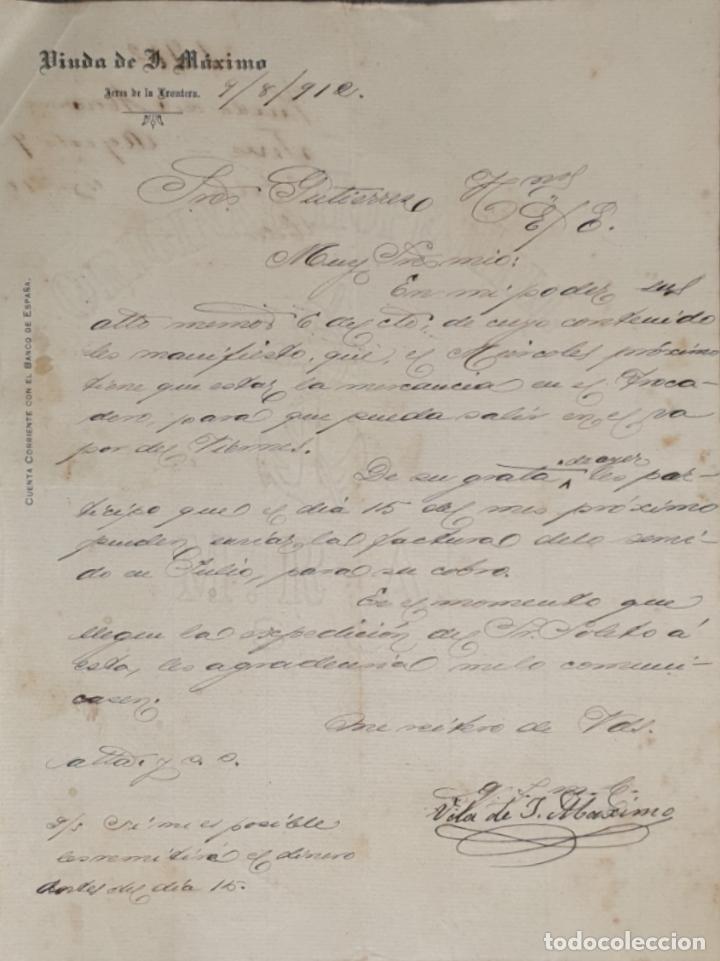 Viuda de J. Máximo
Jerez de la Frontera. 9/8/912.
Sres Gutierrez Hnos
E/E.
Muy Sres mio:
En mi poder sus
atta memos 6 del cte, de cuyo contenido
les manifiesto, que, el Miercoles próximo
tiene que estar la mercancia en el Troca-
dero, para que pueda salir en el va
por del Viernes.
De su grata de ayer les par-
ticipo que el dia 15 del mes próximo
pueden enviar la factura de lo remiti-
do en Julio, para su cobro.
En el momento que
llegue la expedición del Sr. Soleto á
esta, les agradeceria me lo comuni-
casen.
Me reitero de Vds.
atta. y s. s.
q. s. m. b.
Vda de J. Maximo
p/s Si me es posible
les remitiré el dinero
antes del dia 15.
CUENTA CORRIENTE CON EL BANCO DE ESPAÑA.
todocoleccion.net